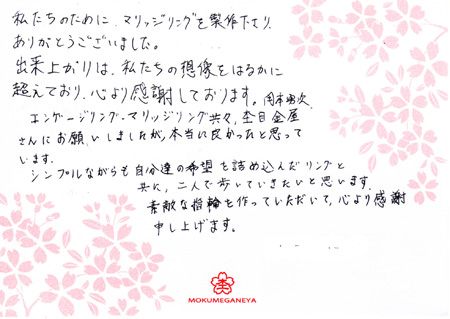 私たちのために、マリッジリングを製作下さり、
ありがとうございました。
出来上がりは、私たちの想像をはるかに
超えており、心より感謝しております。
エンゲージリング・マリッジリング共々、杢目金屋
さんにお願いしましたが、本当に良かったと思って
います。
シンプルながらも自分達の希望を詰め込んだリングと
共に、二人で歩いていきたいと思います。
素敵な指輪を作っていただいて、心より感謝
申し上げます。
MOKUMEGANEYA